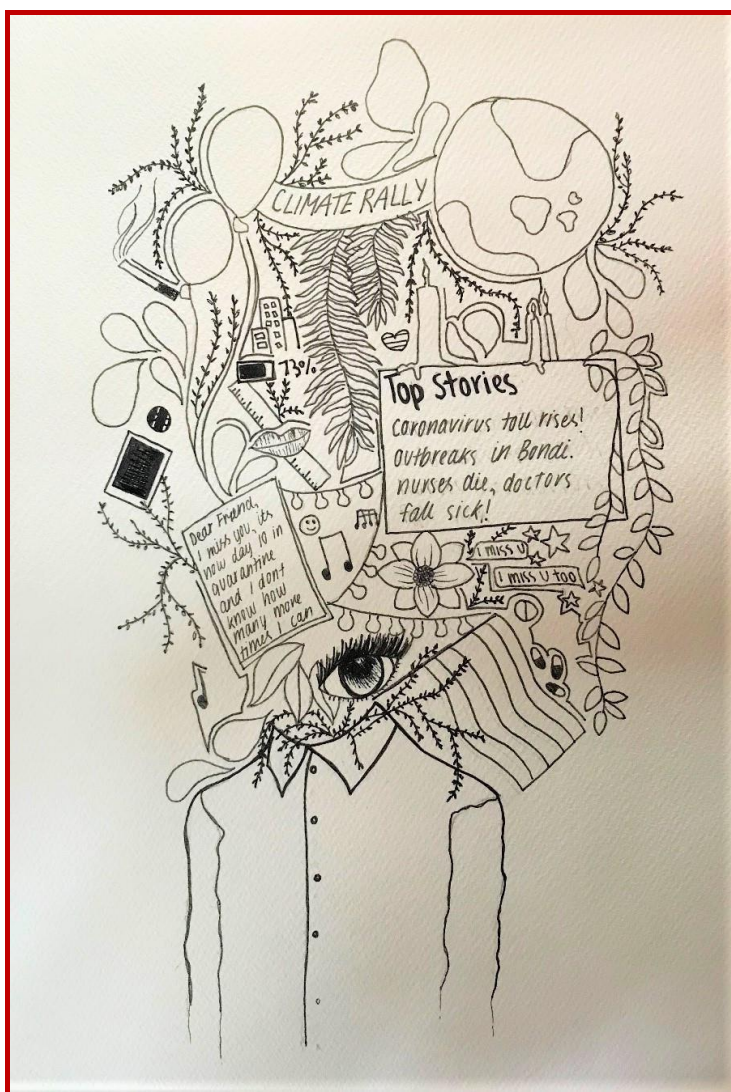 CLIMATE RALLY
73%
Top Stories
coronavirus toll rises!
outbreaks in Bondi.
nurses die, doctors
fall sick!
Dear Friend,
I miss you, its
now day 10 in
quarantine
and I dont
know how
many more
times I can
I miss u
I miss u too